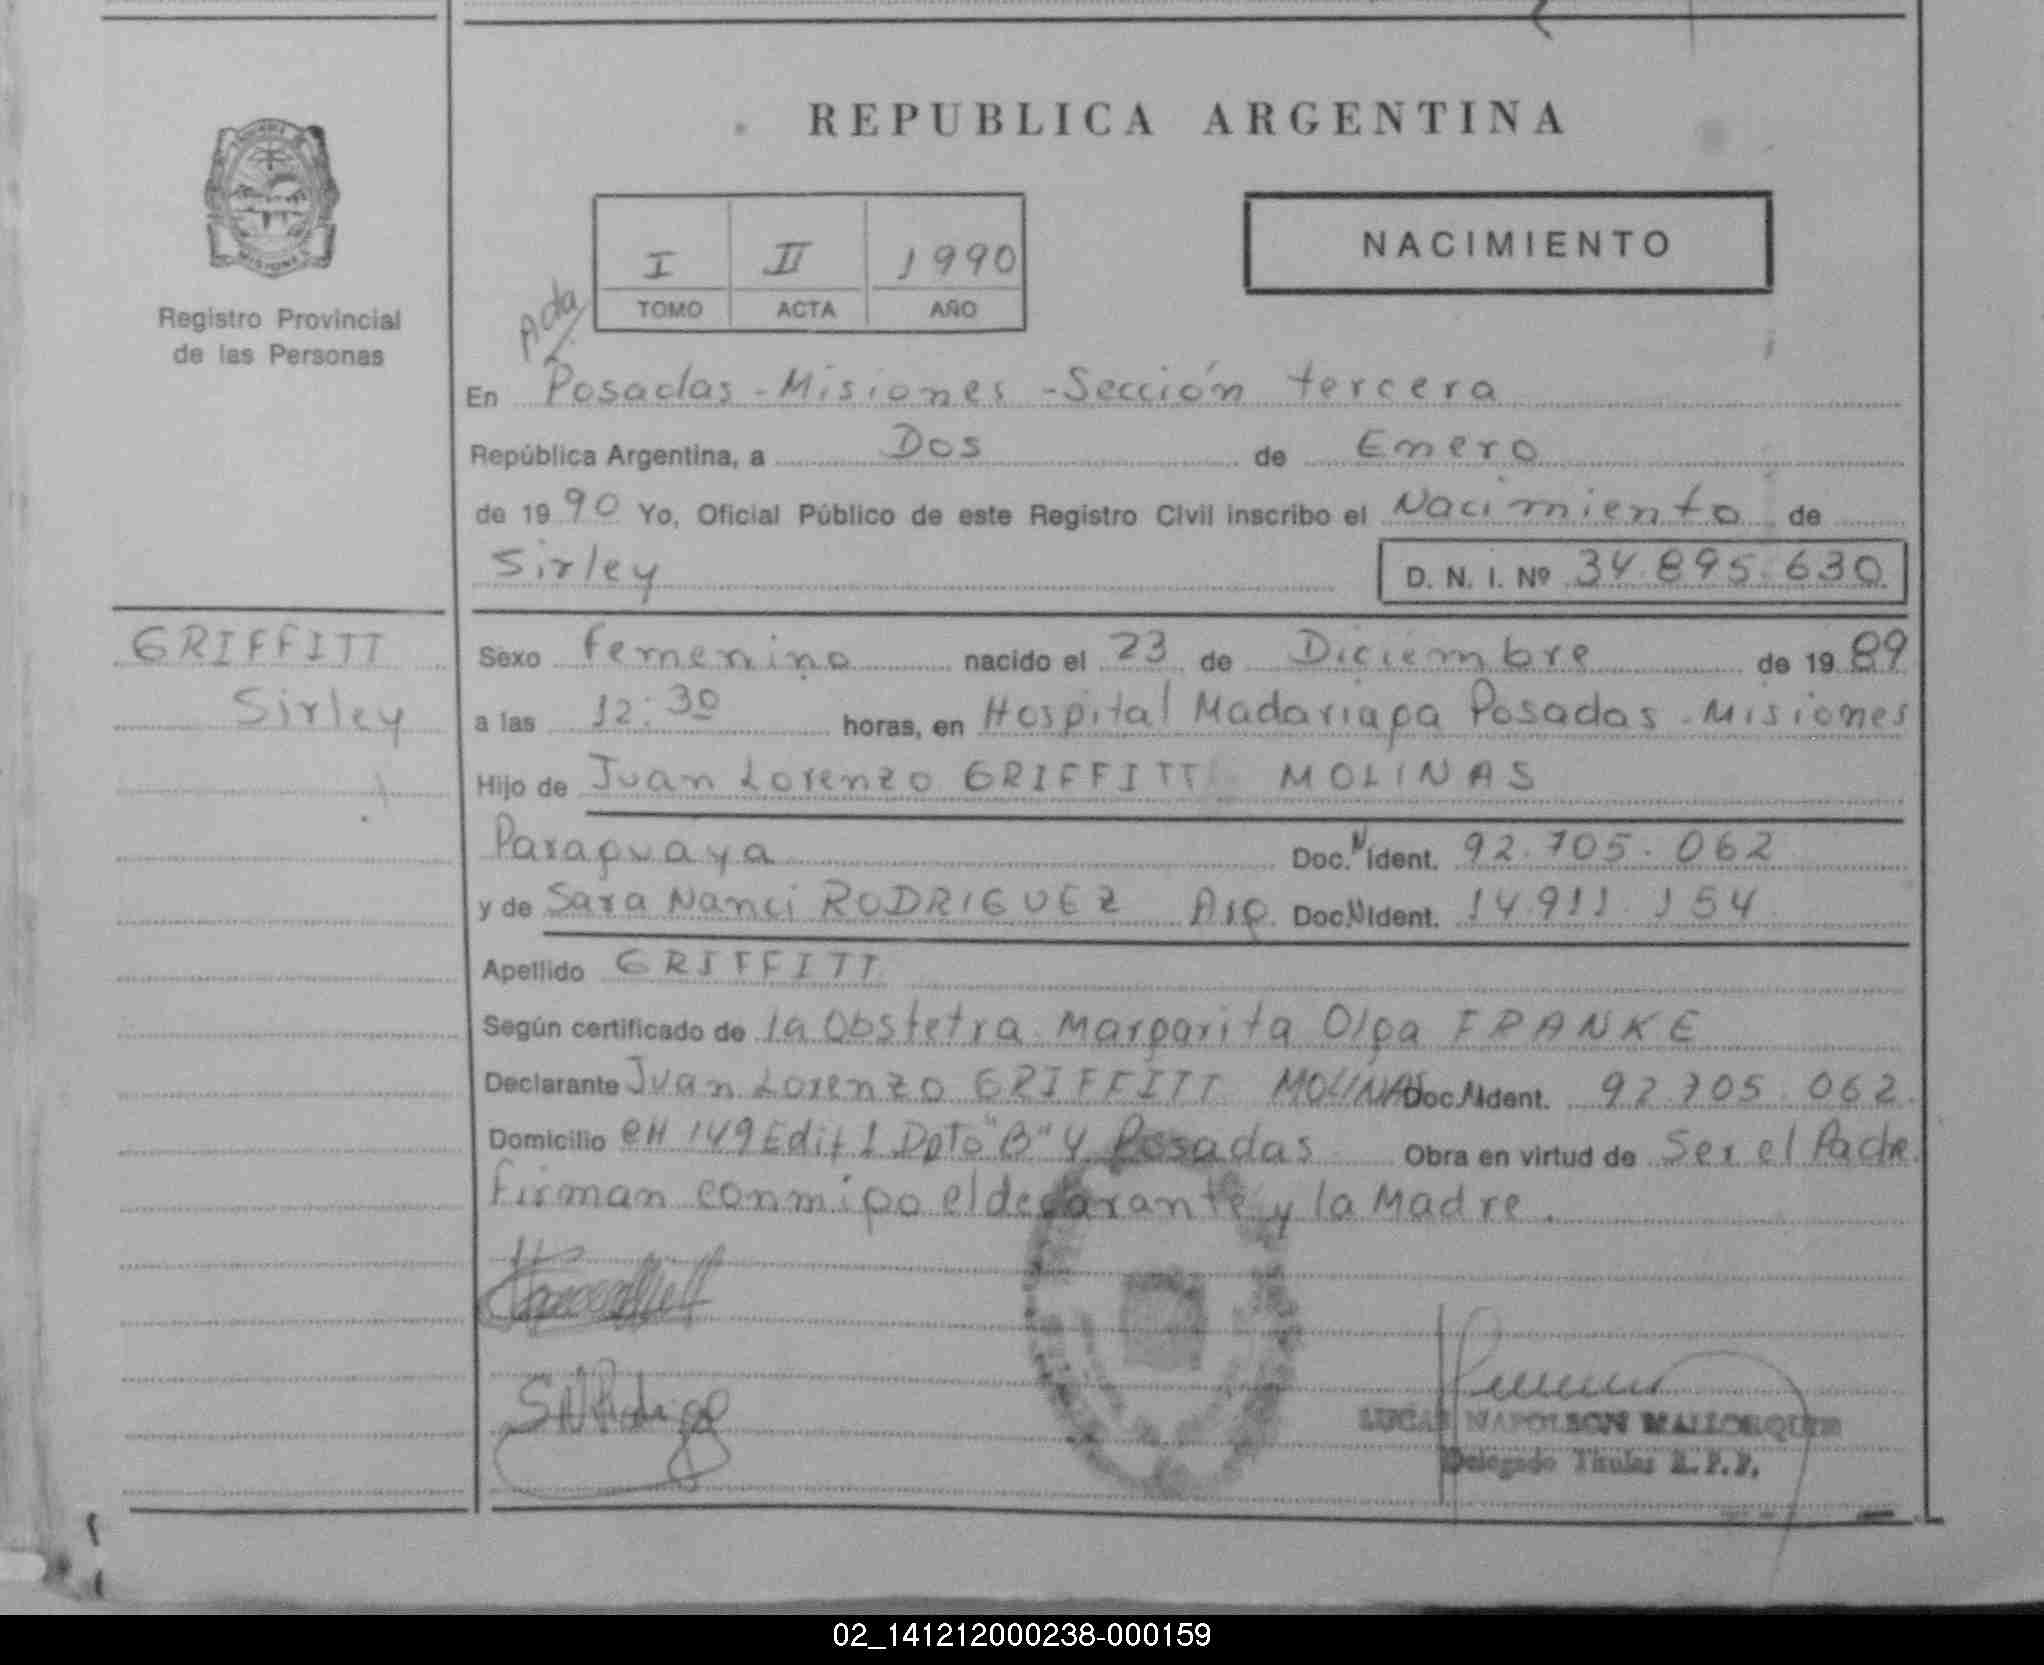 REPUBLICA ARGENTINA
Registro Provincial
de las Personas
I II 1990
TOMO ACTA AÑO
NACIMIENTO
Acta 2
En Posadas - Misiones - Sección tercera
República Argentina, a Dos de Enero
de 1990 Yo, Oficial Público de este Registro Civil inscribo el Nacimiento de
Sirley D. N. I. Nº 34.895.630
GRIFFITT
Sirley
Sexo Femenino nacido el 23 de Diciembre de 1989
a las 12:30 horas, en Hospital Madariaga Posadas - Misiones
Hijo de Juan Lorenzo GRIFFITT MOLINAS
Paraguaya Doc. N Ident. 92.705.062
y de Sara Nanci RODRIGUEZ Arg. Doc. N Ident. 14.911.154
Apellido GRIFFITT
Según certificado de la Obstetra Margarita Olga FRANKE
Declarante Juan Lorenzo GRIFFITT MOLINAS Doc. N Ident. 92.705.062.
Domicilio CH 149 Edif 1 Dpto "B" 4 Posadas Obra en virtud de Ser el Padre.
Firman conmigo el declarante y la Madre.
LUCAS NAPOLEON MALLORQUIN
Delegado Titular R.P.P.
02_141212000238-000159